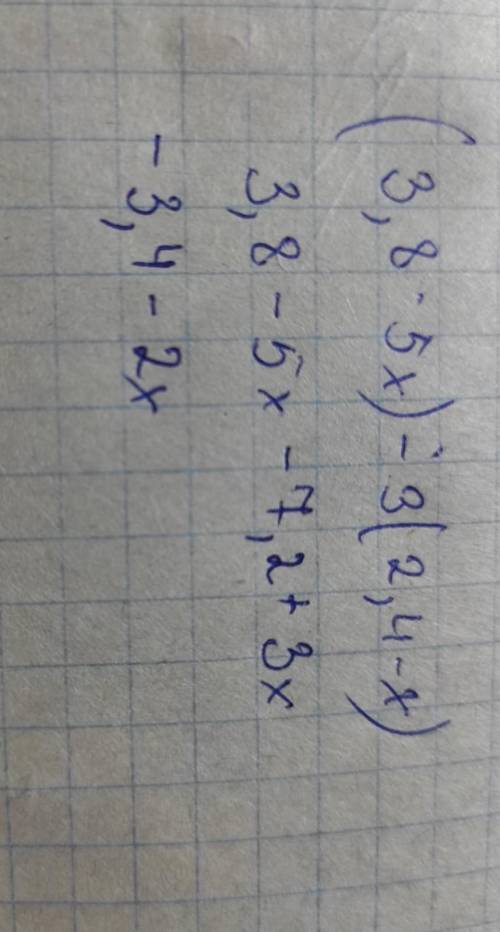 (3,8-5x)-3(2,4-x)
3,8-5x-7,2+3x
-3,4-2x